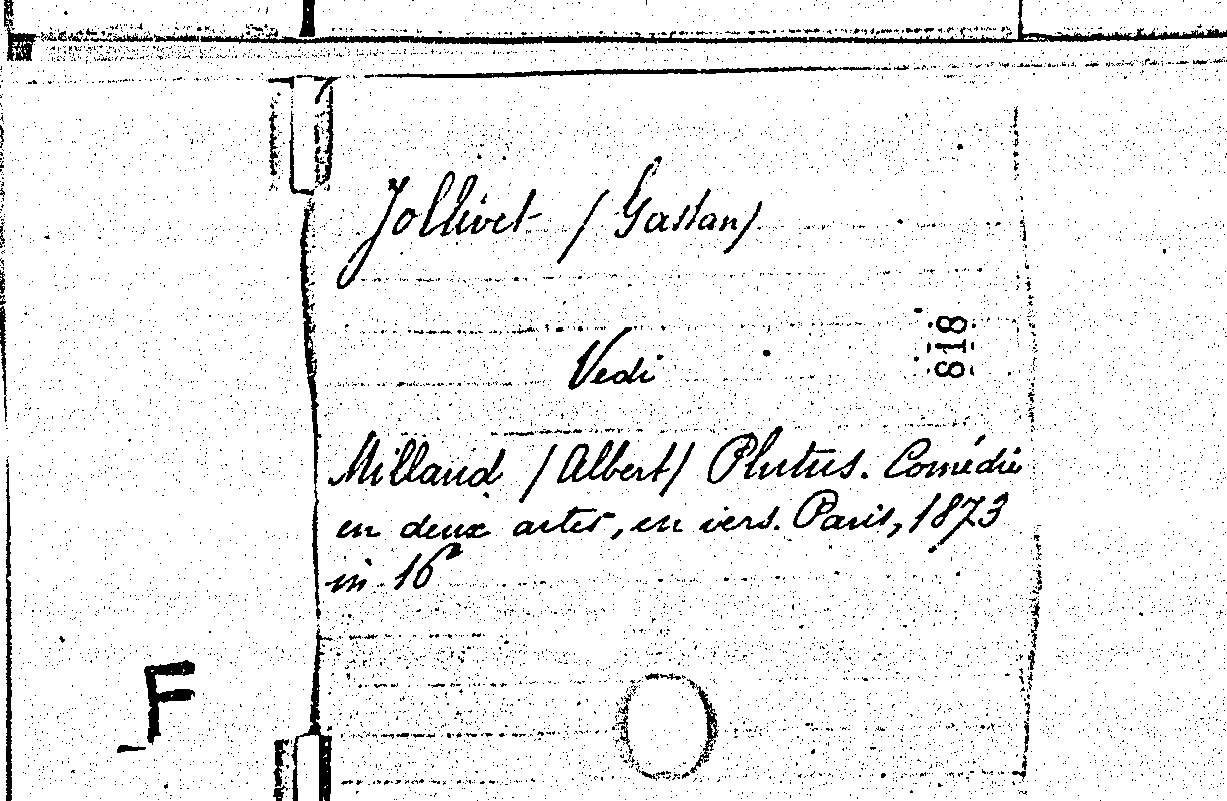 Jollivet (Gaston)
818
Vedi
Millaud (Albert) Plutus. Comédie
en deux actes, en vers. Paris, 1873
in 16°
F